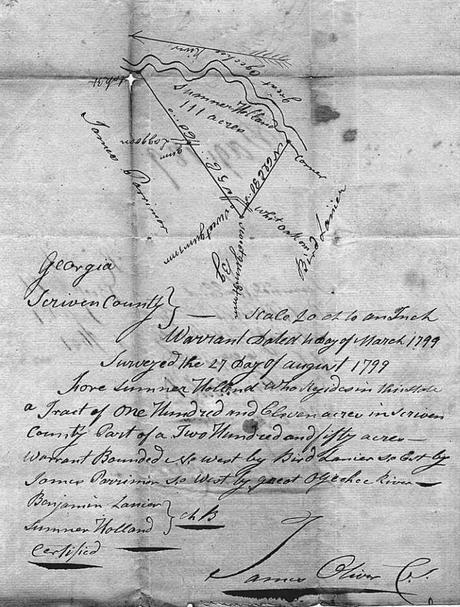 great Ogechee River
Sumner Holland
111 acres
James Parrimor
Corner
Bird Lanier
Georgia
Scriven County } Scale 20 ch to an Inch
Warrant Dated 4 Day of March 1799
Surveyed the 27 Day of august 1799
Sumner Holland Who Resides in this State
a Tract of One Hundred and Eleven acres in Scriven
County Part of a Two Hundred and fifty acres
Warrant Bounded No west by Bird Lanier So East by
James Parrimor So West by great Ogechee River
Benjamin Lanier
Sumner Holland } ch B
Certified
James Oliver C. S.